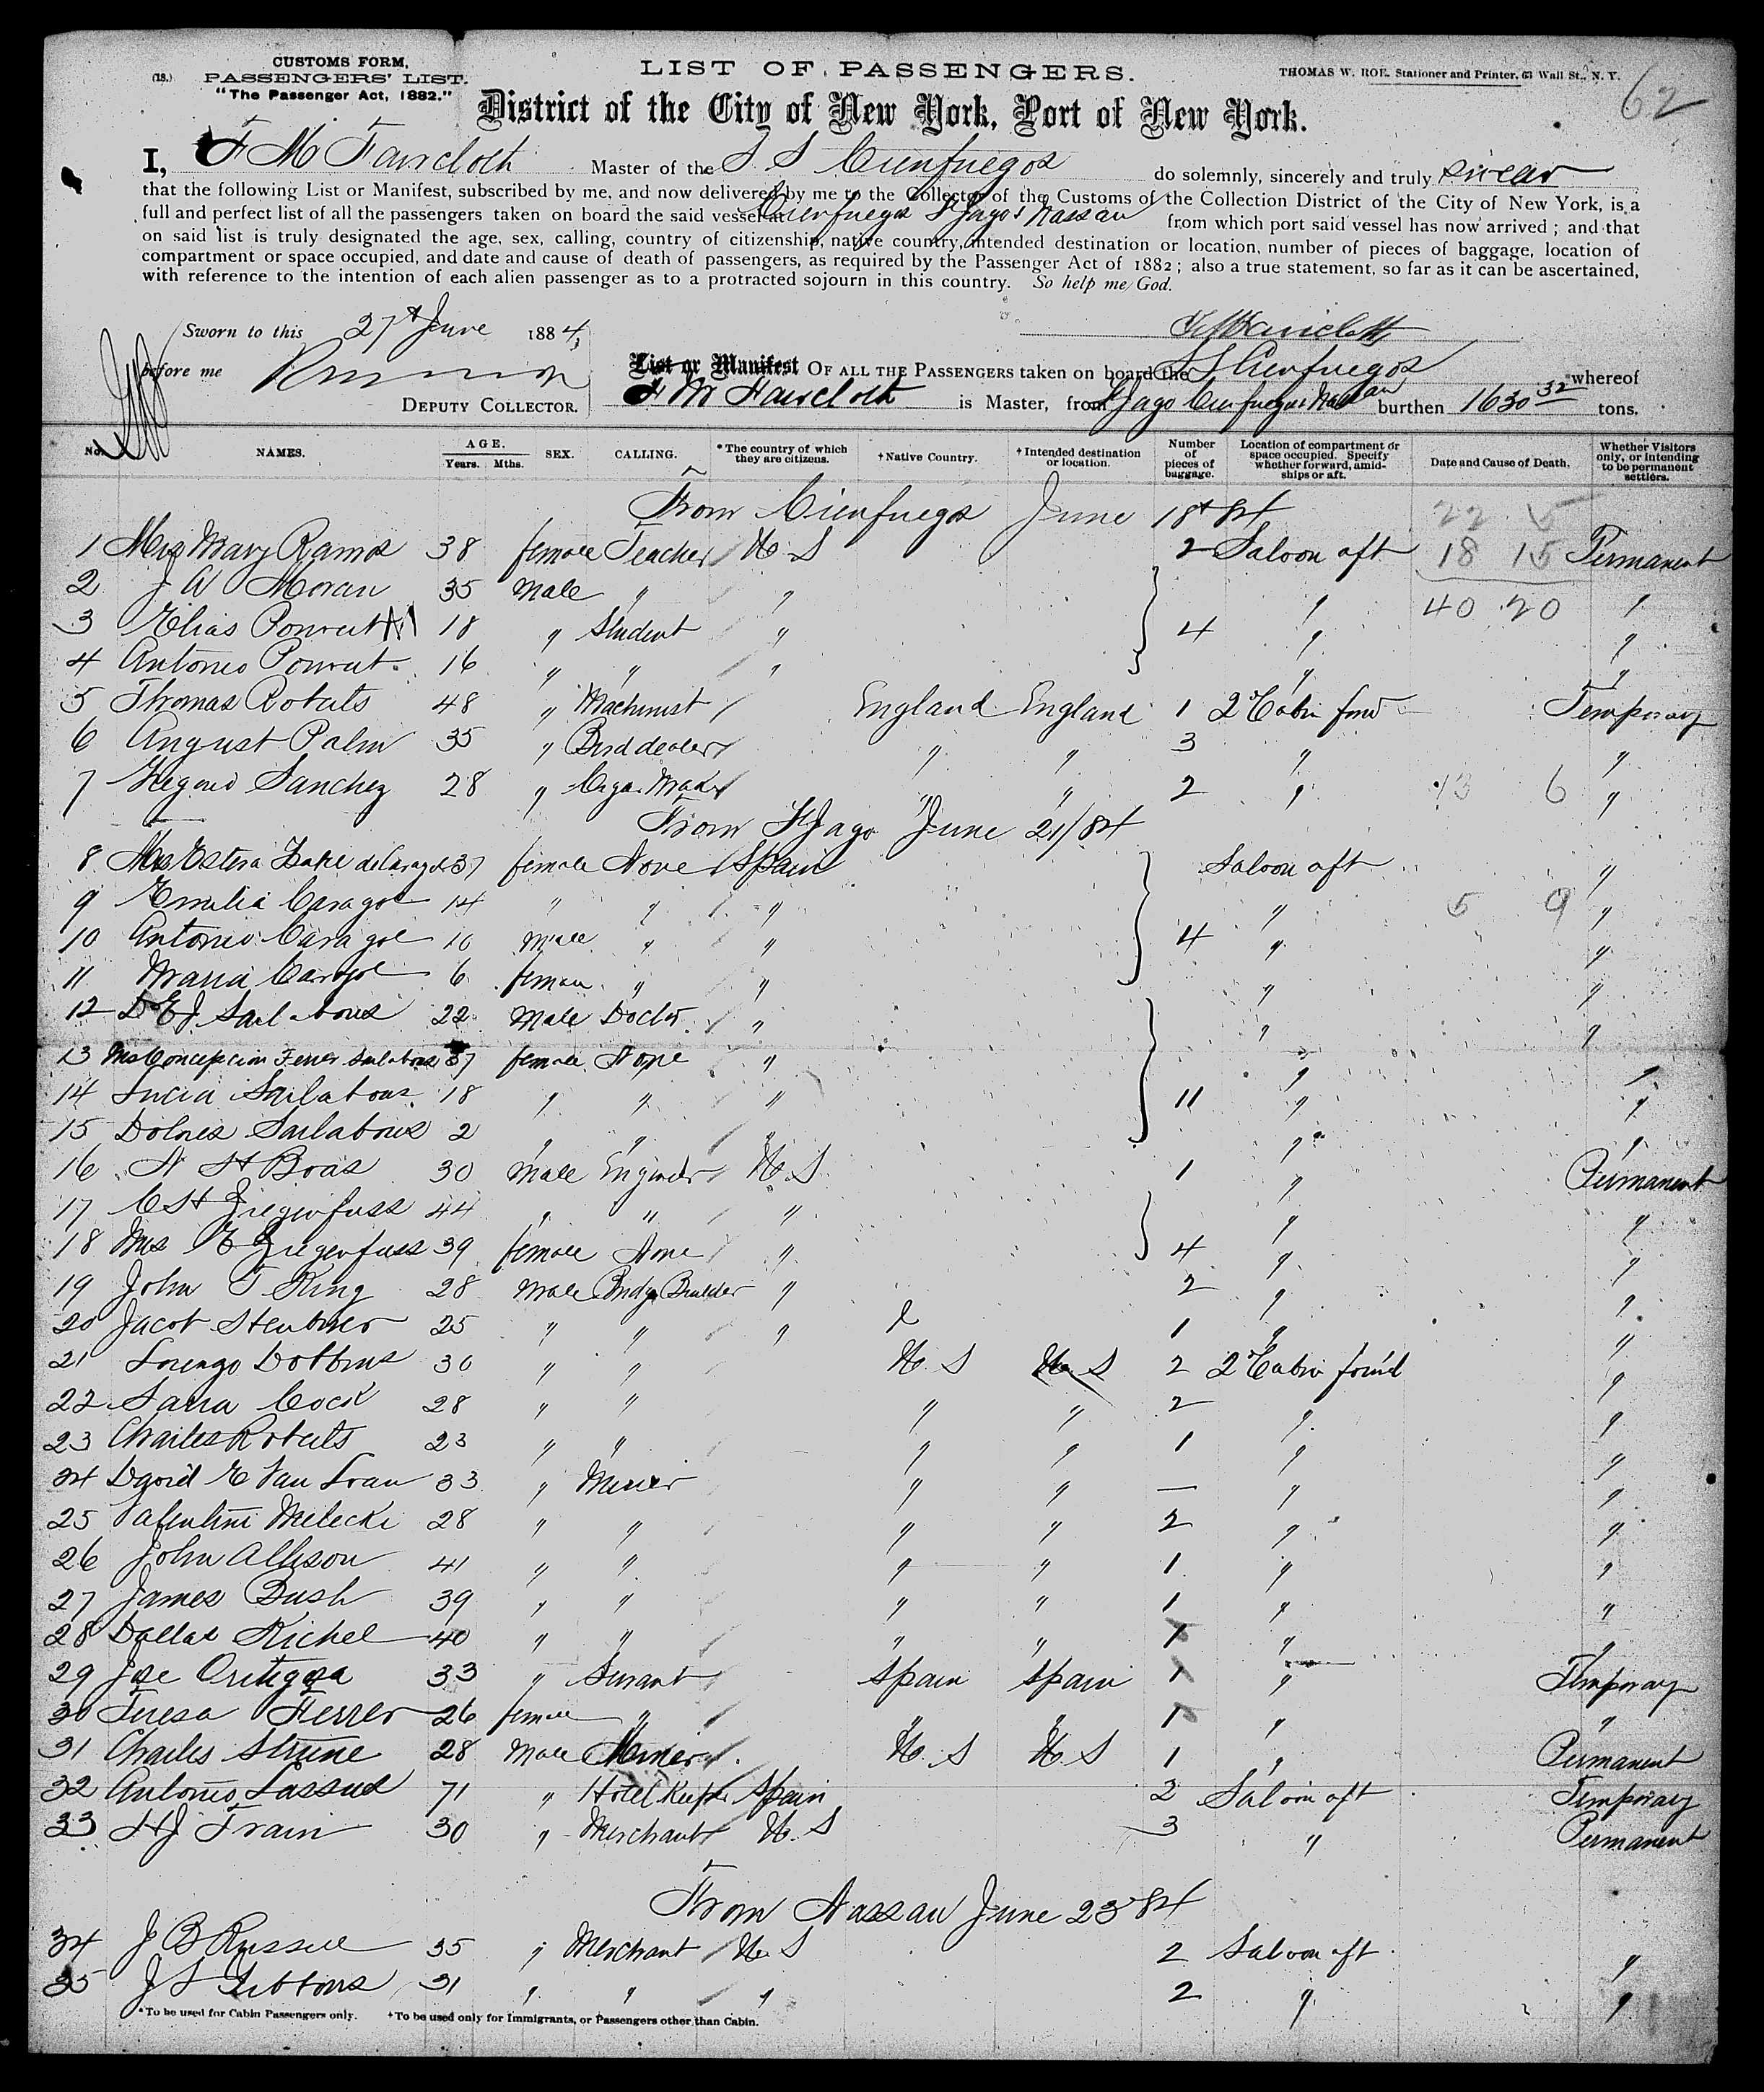 CUSTOMS FORM,
(18.) PASSENGERS' LIST.
"The Passenger Act, 1882."
LIST OF PASSENGERS.
THOMAS W. ROE, Stationer and Printer, 63 Wall St., N. Y.
62
District of the City of New York, Port of New York.
I, F M Faircloth Master of the S S Cienfuegos do solemnly, sincerely and truly swear
that the following List or Manifest, subscribed by me, and now delivered by me to the Collector of the Customs of the Collection District of the City of New York, is a
full and perfect list of all the passengers taken on board the said vessel at Cienfuegos St Jago & Nassau from which port said vessel has now arrived ; and that
on said list is truly designated the age, sex, calling, country of citizenship, native country, intended destination or location, number of pieces of baggage, location of
compartment or space occupied, and date and cause of death of passengers, as required by the Passenger Act of 1882 ; also a true statement, so far as it can be ascertained,
with reference to the intention of each alien passenger as to a protracted sojourn in this country. So help me God.
Sworn to this 27th June 1884,
F M Faircloth
before me
List or Manifest OF ALL THE PASSENGERS taken on board the S S Cienfuegos whereof
DEPUTY COLLECTOR.
F M Faircloth is Master, from St Jago Cienfuegos Nassau burthen 1630 32 tons.
No. NAMES. AGE. Years. Mths. SEX. CALLING. *The country of which they are citizens. †Native Country. †Intended destination or location. Number of pieces of baggage. Location of compartment or space occupied. Specify whether forward, amidships or aft. Date and Cause of Death. Whether Visitors only, or intending to be permanent settlers.
From Cienfuegos June 18th 84 22 5
1 Mrs Mary Ramos 38 female Teacher U. S 2 Saloon aft 18 15 Permanent
2 J A Moran 35 male " " " 40 20 "
3 Elias Ponvert 18 " Student " 4 " "
4 Antonio Ponvert 16 " " " " "
5 Thomas Roberts 48 " Machinist England England 1 2d Cabin forwd Temporary
6 August Palm 35 " Bird dealer " " 3 " "
7 Sanchez 28 " Cigar Maker " " 2 " 13 6 "
From St Jago June 21/84
8 Mrs Estera de Caragol 37 female None Spain Saloon aft "
9 Emilia Caragol 14 " " " " 5 9 "
10 Antonio Caragol 10 Male " " 4 " "
11 Maria Caragol 6 female " " " "
12 D E J Sarlabous 22 Male Doctor " " "
13 Mrs Concepcion Ferrer Sarlabous 37 female None " " "
14 Lucia Sarlabous 18 " " " 11 " "
15 Dolores Sarlabous 2 " " " " "
16 N H Boas 30 Male Engineer U. S 1 " Permanent
17 C H Ziegenfuss 44 " " " " "
18 Mrs E Ziegenfuss 39 female None " 4 " "
19 John T King 28 Male Bridge Builder " 2 " "
20 Jacob Steubner 25 " " " 1 " "
21 Lorenzo Dobbins 30 " " U. S U. S 2 2d Cabin forwd "
22 Cock 28 " " " " 2 " "
23 Charles Roberts 23 " " " " 1 " "
24 David E Van Loan 33 " Miner " " — " "
25 Valentine Milecki 28 " " " " 2 " "
26 John Allison 41 " " " " 1 " "
27 James Bush 39 " " " " 1 " "
28 Dallas Kichel 40 " " " " 1 " "
29 Jose Ortigosa 33 " Servant Spain Spain 1 " Temporary
30 Teresa Ferrer 26 female " " " 1 " "
31 Charles Strine 28 Male Miner U. S U. S 1 " Permanent
32 Antonio Lassus 71 " Hotel Keeper Spain 2 Saloon aft Temporary
33 H J Train 30 " Merchant U. S 3 " Permanent
From Nassau June 23d 84
34 J B Russell 35 " Merchant U. S 2 Saloon aft "
35 J S Gibbons 31 " " " 2 " "
*To be used for Cabin Passengers only. †To be used only for Immigrants, or Passengers other than Cabin.